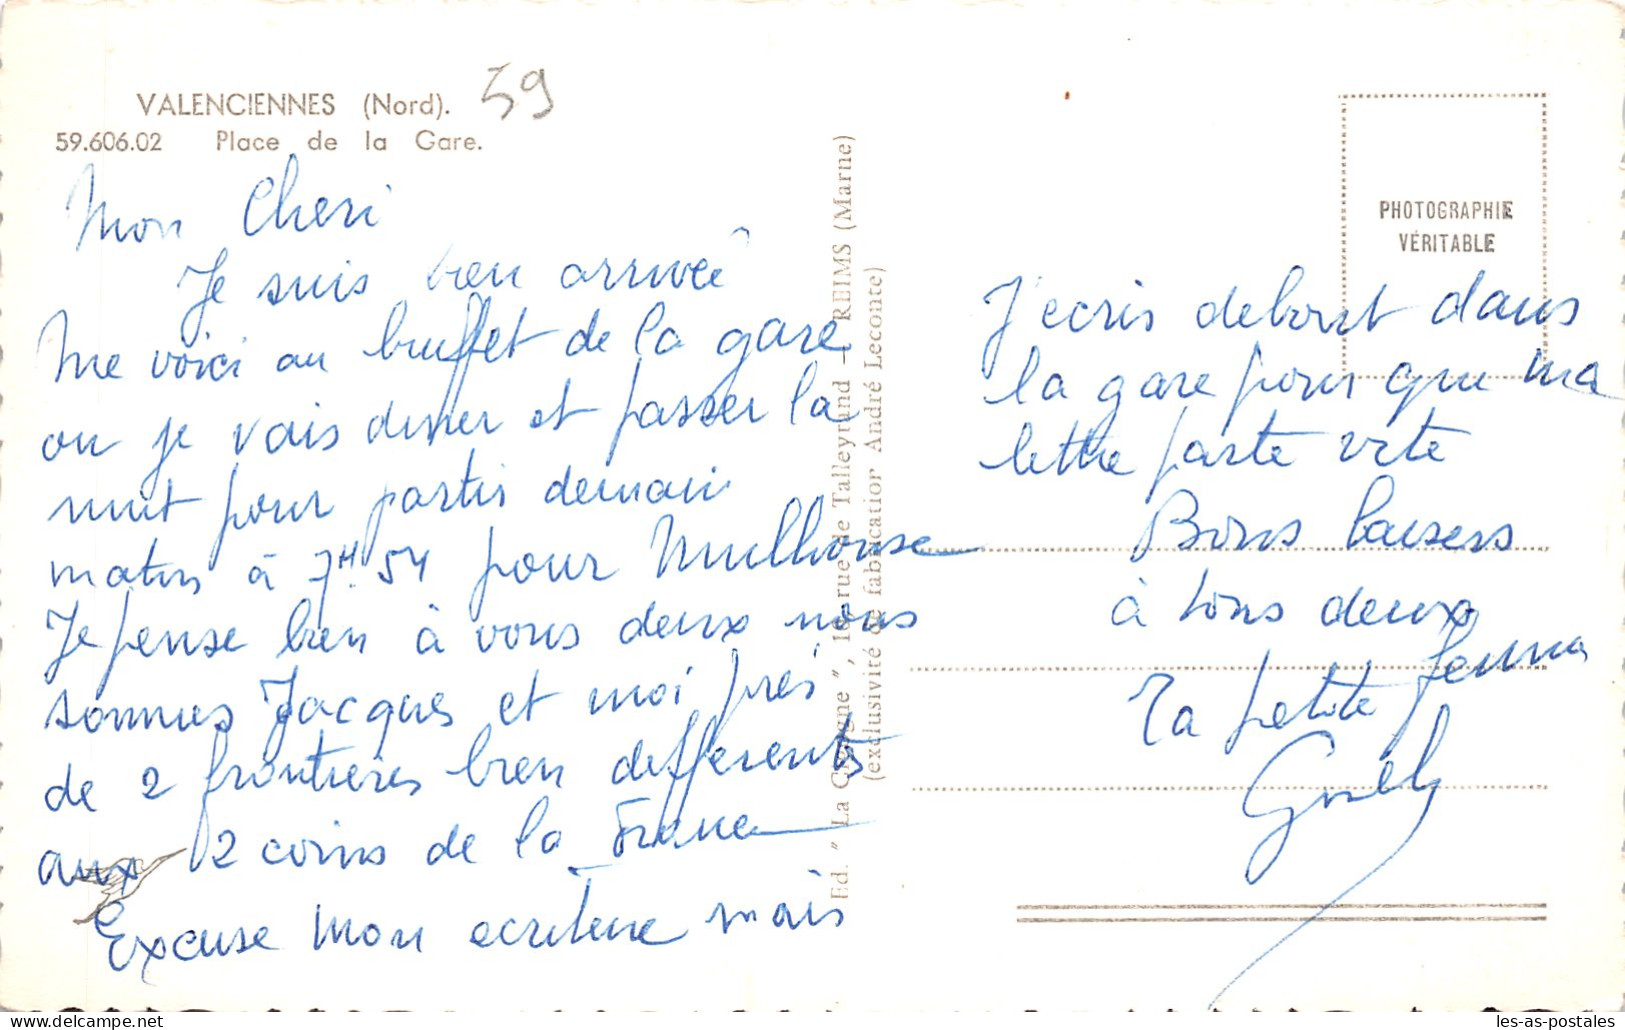 VALENCIENNES (Nord). 59
59.606.02 Place de la Gare.
Mon Cheri
Je suis bien arrivée
Me voici au buffet de la gare
ou je vais diner et passer la
nuit pour partir demain
matin à 7H.54 pour Mulhouse
Je pense bien à vous deux nous
sommes Jacques et moi près
de 2 frontières bien differents
aux 2 coins de la France
Excuse mon ecriture mais
Ed. "La Cigogne", rue de Talleyrand - REIMS (Marne)
(exclusivité de fabrication André Leconte)
PHOTOGRAPHIE
VÉRITABLE
J'ecris debout dans
la gare pour que ma
lettre parte vite
Bons baisers
à tous deux
Ta petite femme
les-as-postales